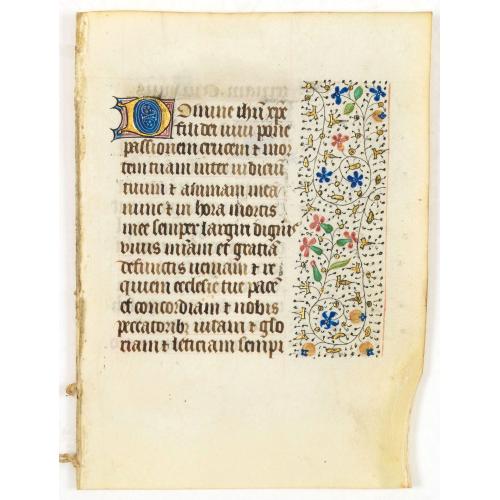 Domine ihu xpe
fili dei uiui pone
passionem crucem et mor
tem tuam inter iudiciu
tuum et animam mea
nunc et in hora mortis
mee semper largiri digni
viuis miam et gratia
defunctis ueniam et re
quiem ecclesie tue pace
et concordiam et nobis
peccatorib uitam et glo
riam et leticiam sempi